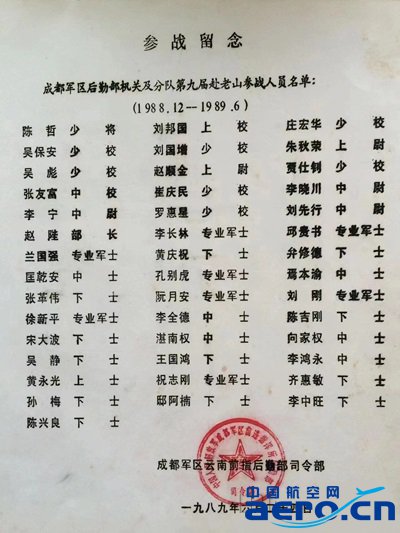 参战留念
成都军区后勤部机关及分队第九届赴老山参战人员名单：
(1988.12—1989.6)
陈哲 少将 刘邦国 上校 庄宏华 少校
吴保安 少校 刘国增 少校 朱秋荣 上尉
吴彪 少校 赵顺金 上尉 贾仕钊 少校
张友富 中校 崔庆民 少校 李晓川 中尉
李宁 中尉 罗惠星 少校 刘先行 中尉
赵陞 部长 李长林 专业军士 邱贵书 专业军士
兰国强 专业军士 黄庆祝 下士 弁修德 下士
匡乾安 中士 孔别虎 专业军士 焉本渝 中士
张革伟 下士 阮月安 专业军士 刘刚 专业军士
徐新平 专业军士 李全德 中士 陈吉刚 下士
宋大波 下士 湛南权 中士 向家权 中士
吴静 下士 王国鸿 下士 李鸿永 中士
黄永光 上士 祝志刚 专业军士 齐惠敏 下士
孙梅 下士 邸阿楠 下士 李中旺 下士
陈兴良 下士
成都军区云南前指后勤部司令部
一九八九年六月
中国航空网
aero.cn